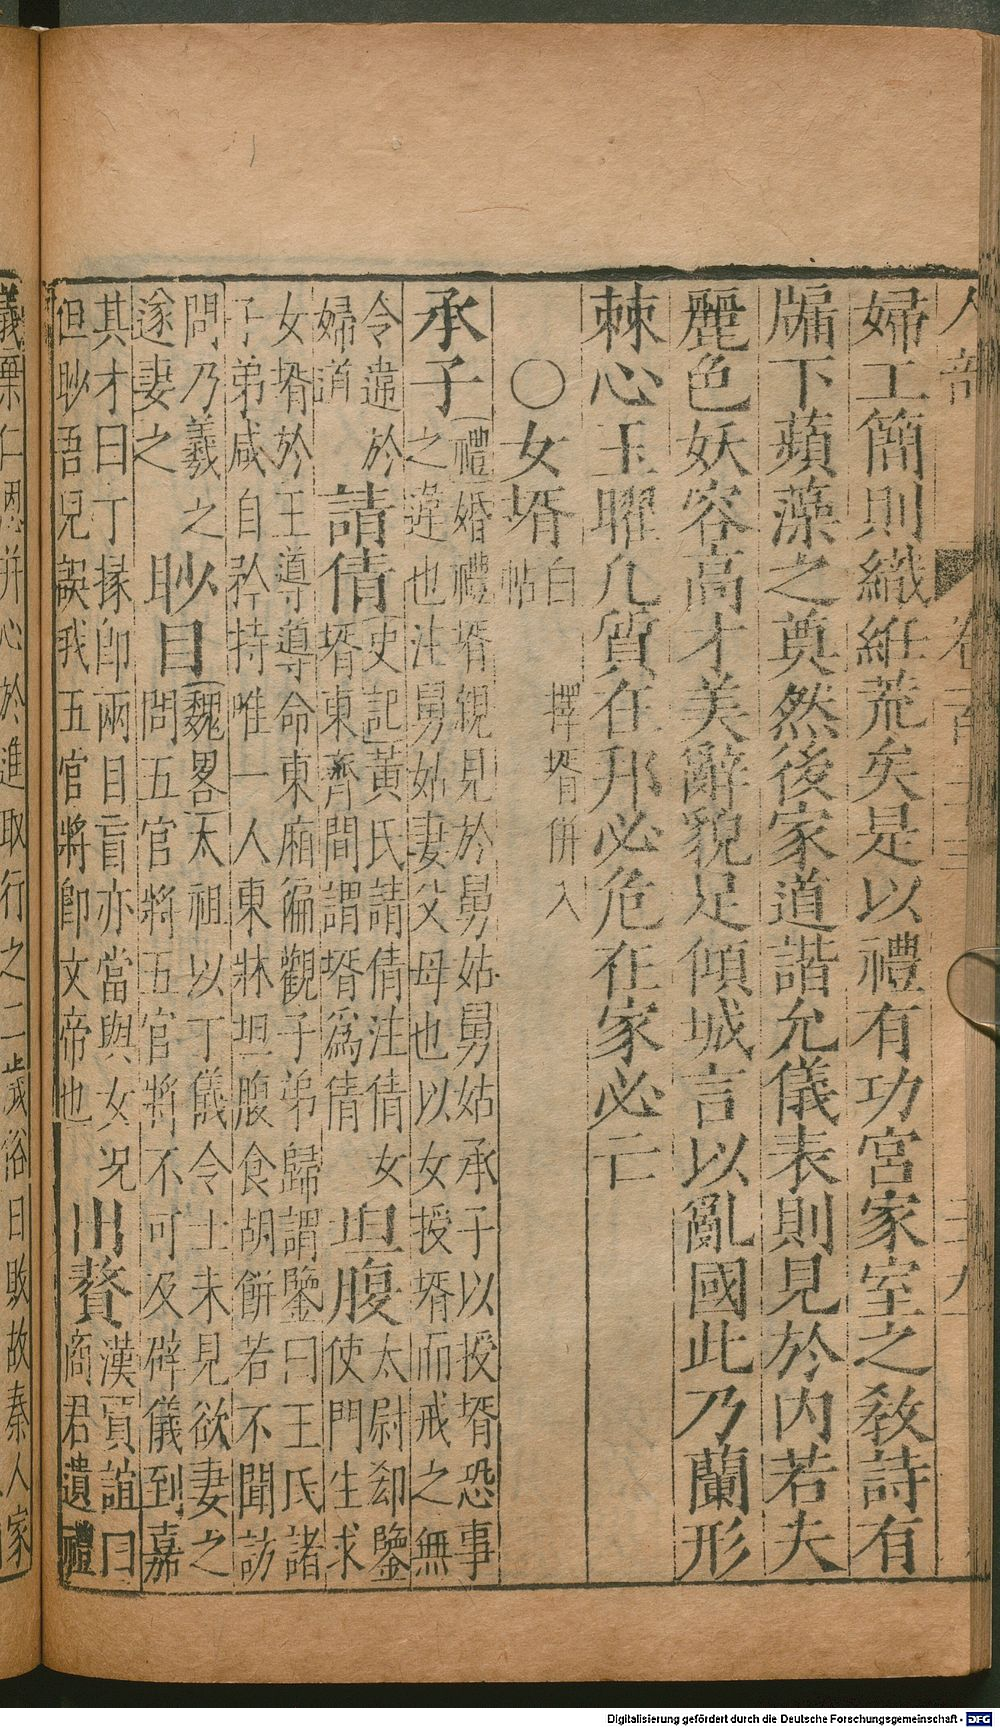 人部 卷 三九
婦工簡則織紝荒矣是以禮有功宮家室之教詩有
牖下蘋藻之奠然後家道諧允儀表則見於內若夫
麗色妖容高才美辭貌足傾城言以亂國此乃蘭形
棘心玉曜瓦質在邦必危在家必亡
〇女壻白帖 擇壻併入
承子禮婚禮壻親見於舅姑舅姑承子以授壻恐事
之違也注舅姑妻父母也以女授壻而戒之無
令違於
婦道 請倩史記黃氏請倩注倩女
壻東齊間謂壻為倩 坦腹太尉郄鑒
使門生求
女壻於王導導命東廂徧觀子弟歸謂鑒曰王氏諸
子弟咸自矜持唯一人東牀坦腹食胡餅若不聞訪
問乃羲之
遂妻之 眇目魏畧太祖以丁儀令士未見欲妻之
問五官將五官將不可及辟儀到嘉
其才曰丁掾卽兩目盲亦當與女況
但眇吾兒誤我五官將卽文帝也 出贅漢賈誼曰
商君遺禮
義棄仁恩并心於進取行之二歲俗日敗故秦人家
Digitalisierung gefördert durch die Deutsche Forschungsgemeinschaft - DFG